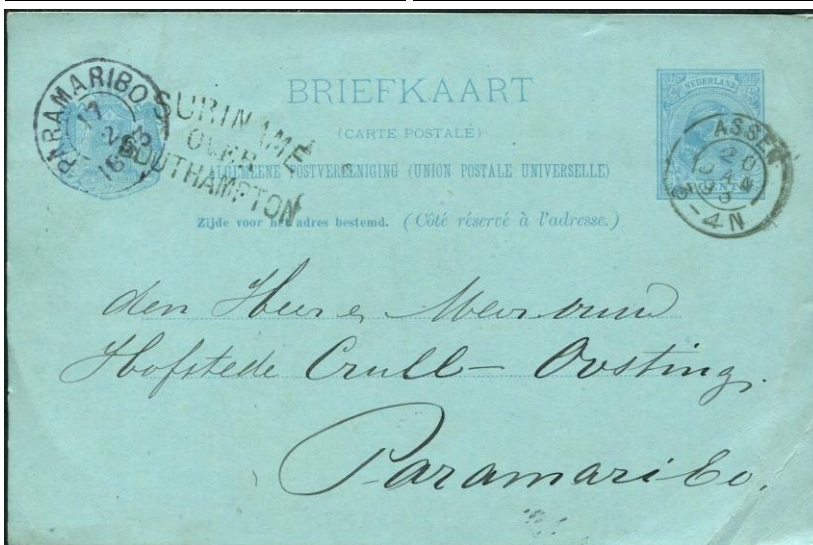 BRIEFKAART
(CARTE POSTALE)
ALGEMEENE POSTVEREENIGING (UNION POSTALE UNIVERSELLE)
Zijde voor het adres bestemd. (Côté réservé à l'adresse.)
NEDERLAND
CENT
PARAMARIBO
SURINAME
OVER
SOUTHAMPTON
ASSEN
20
JAN
93
4-N
den Heer e Mevrouw
Hofstede Crull - Oosting.
Paramaribo.